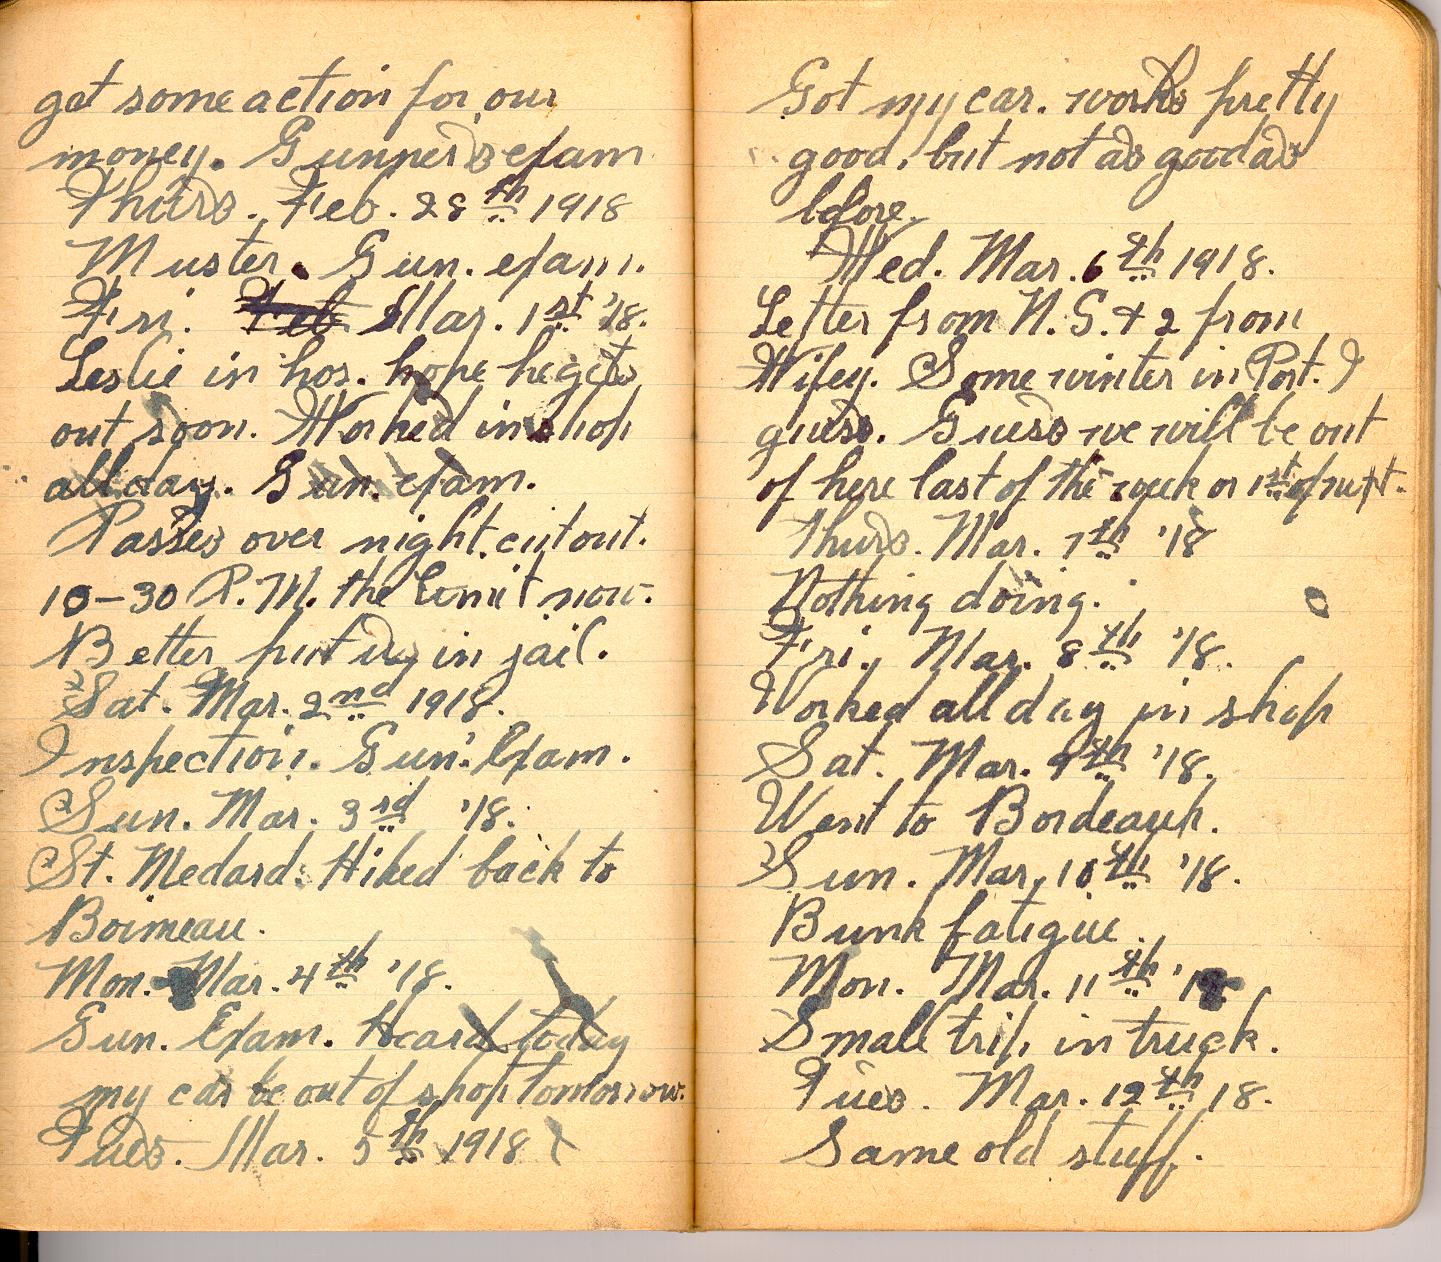 get some action for our
money. Gunners exam
Thurs. Feb. 28th 1918
Muster. Gun. exam.
Fri. Feb Mar. 1st '18.
Leslie in hos. hope he gets
out soon. Worked in shop
all day. Gun. exam.
Passes over night cut out.
10-30 P.M. the limit now.
Better put us in jail.
Sat. Mar. 2nd 1918.
Inspection. Gun. Exam.
Sun. Mar. 3rd '18.
St. Medard. Hiked back to
Boimeau.
Mon. Mar. 4th '18.
Gun. Exam. Heard today
my car be out of shop tomorrow.
Tues. Mar. 5th 1918
Got my car. works pretty
good, but not as good as
before.
Wed. Mar. 6th 1918.
Letter from N.S. + 2 from
Wifey. Some winter in Port. I
guess. Guess we will be out
of here last of the week or 1st of next.
Thurs. Mar. 7th '18
Nothing doing.
Fri., Mar. 8th '18.
Worked all day in shop
Sat. Mar. 9th '18.
Went to Bordeaux.
Sun. Mar. 10th '18.
Bunk fatigue.
Mon. Mar. 11th '18.
Small trip in truck.
Tues. Mar. 12th 18.
Same old stuff.